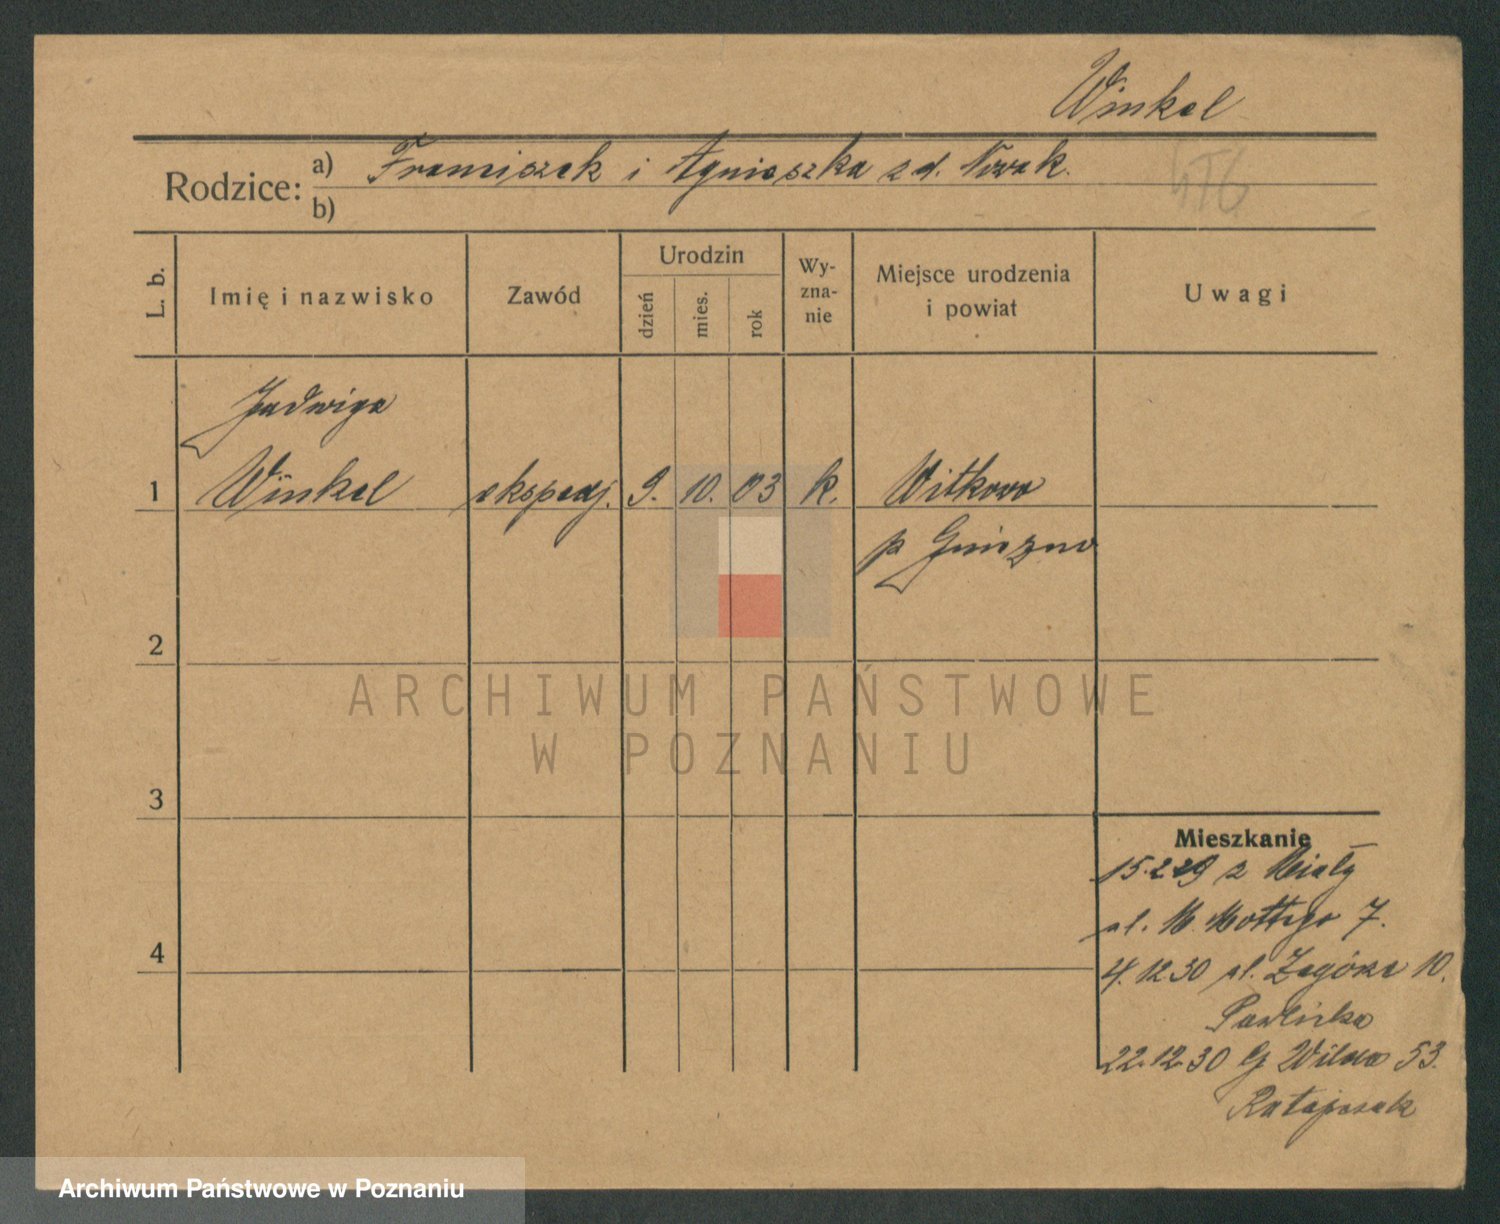 Winkel
Rodzice:
a) Franciszek i Agnieszka zd. Nowak.
b)
L. b.
Imię i nazwisko
Zawód
Urodzin
dzień
mies.
rok
Wy-
zna-
nie
Miejsce urodzenia
i powiat
Uwagi
Jadwiga
1 Winkel ekspedj. 9. 10. 03 k. Witkowo
p Gniezno
2
3
4
ARCHIWUM PAŃSTWOWE
W POZNANIU
Mieszkanie
15.2.29 z Miały
ul. M. Mottego 7.
4.12.30 ul. Zagórze 10.
Pawlicka
22.12.30 G Wilda 53.
Ratajczak
Archiwum Państwowe w Poznaniu